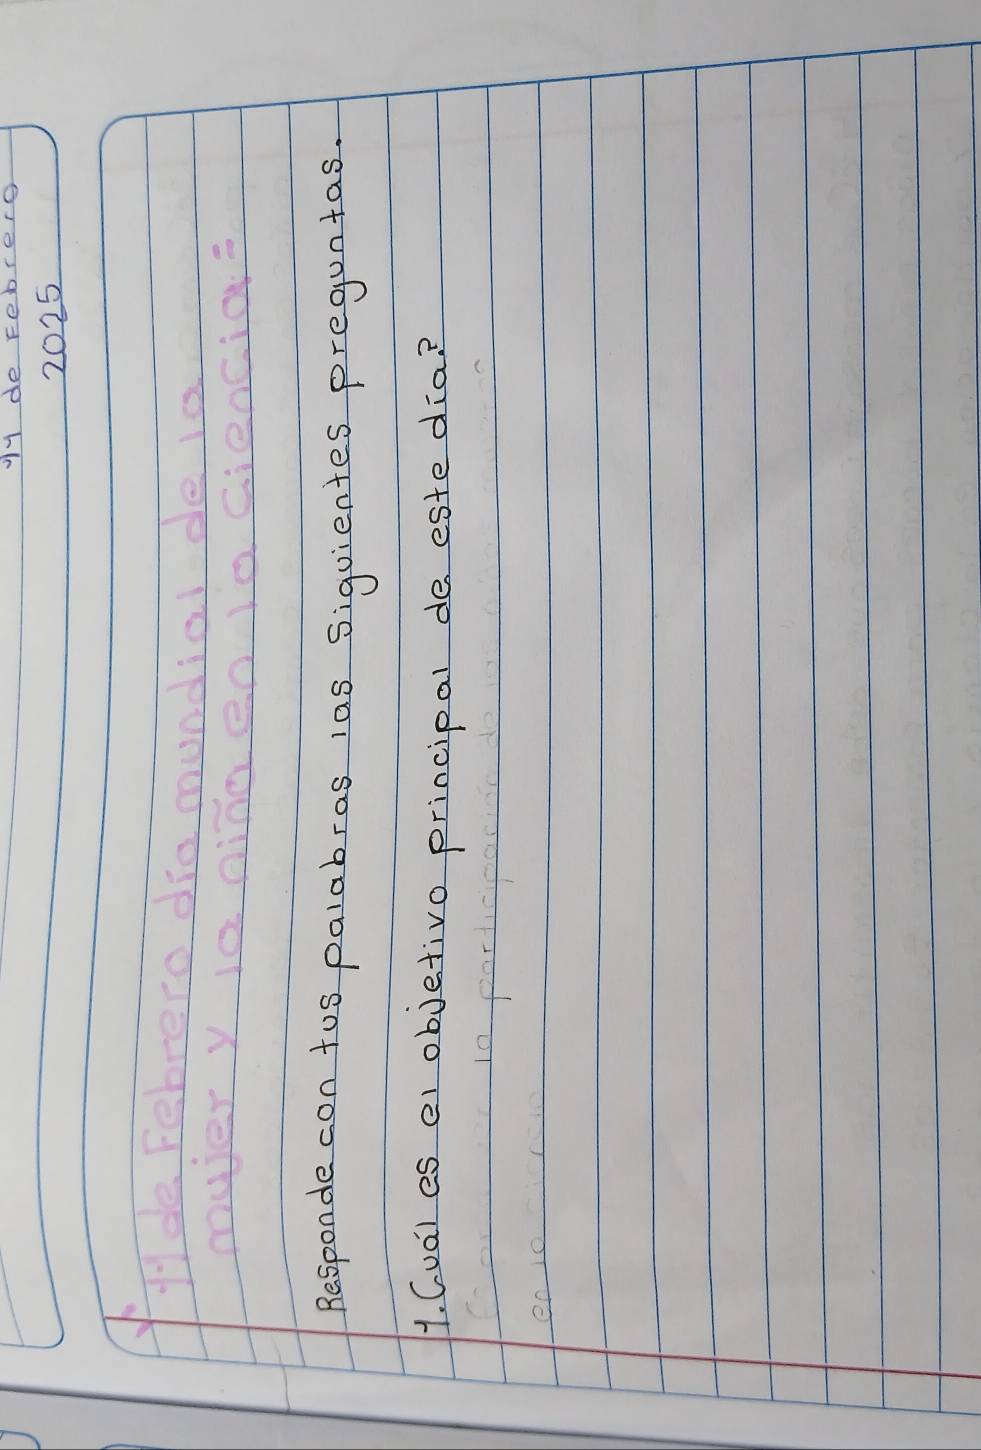 11 de Febrero
2025
11 de Febrero día mundial de la
mujer y la niña en la ciencia:
Responde con tus palabras las siguientes preguntas.
1. Cuál es el objetivo principal de este día?
la participación de las
en la ciencia